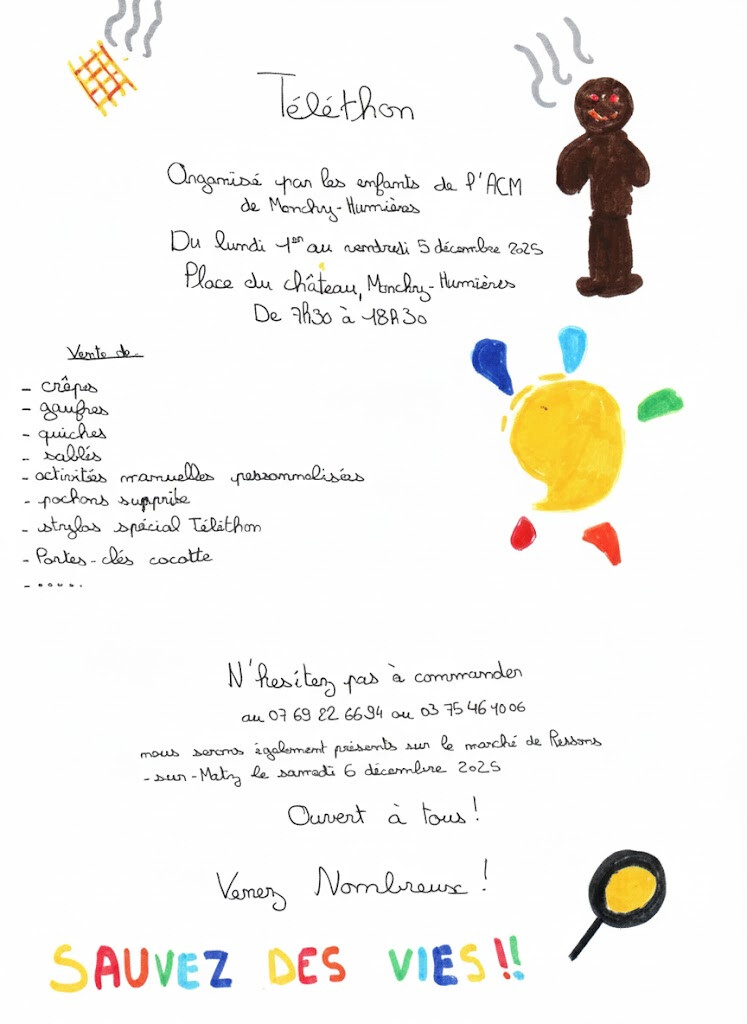 Téléthon
Organisé par les enfants de l'ACM
de Monchy-Humières
Du lundi 1er au vendredi 5 décembre 2025
Place du château, Monchy-Humières
De 7h30 à 18h30
Vente de
- crêpes
- gaufres
- quiches
- sablés
- activités manuelles personnalisées
- pochons surprise
- stylos spécial Téléthon
- Portes-clés cocotte
- .....
N'hesitez pas à commander
au 07 69 22 66 94 ou 03 75 46 40 06
nous serons également présents sur le marché de Ressons
-sur-Matz le samedi 6 décembre 2025
Ouvert à tous !
Venez Nombreux !
SAUVEZ DES VIES !!